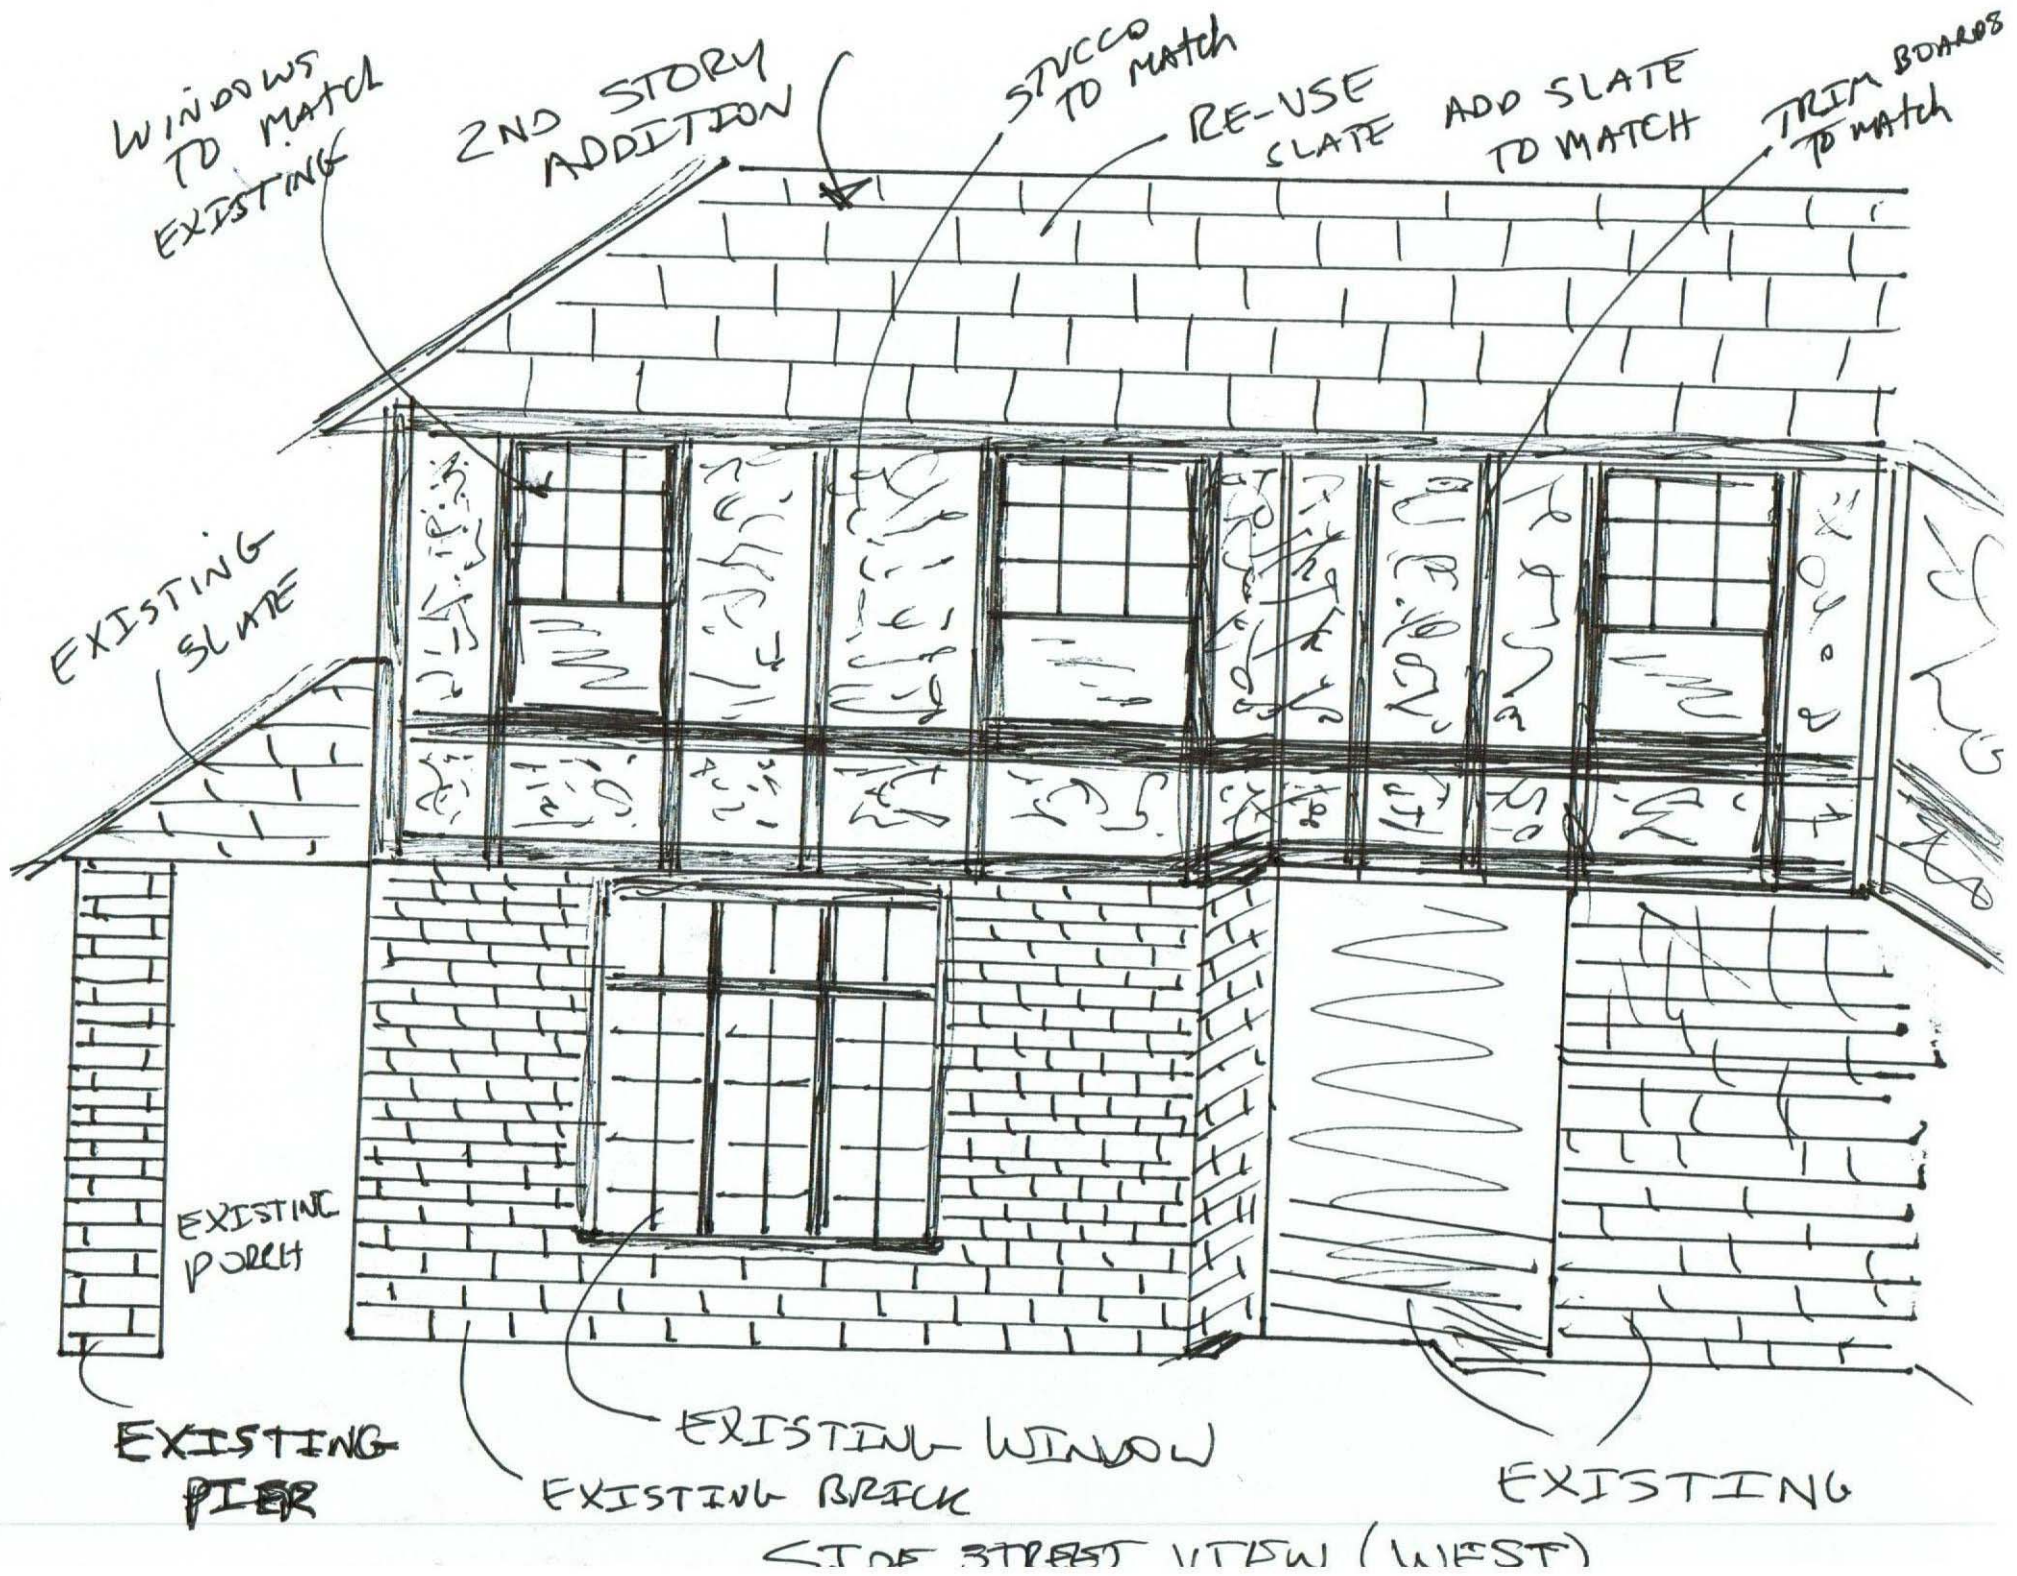 WINDOWS
TO MATCH
EXISTING
2ND STORY
ADDITION
STUCCO
TO MATCH
RE-USE
SLATE
ADD SLATE
TO MATCH
TRIM BOARDS
TO MATCH
EXISTING
SLATE
EXISTING
PORCH
EXISTING
PIER
EXISTING WINDOW
EXISTING BRICK
EXISTING
SIDE STREET VIEW (WEST)